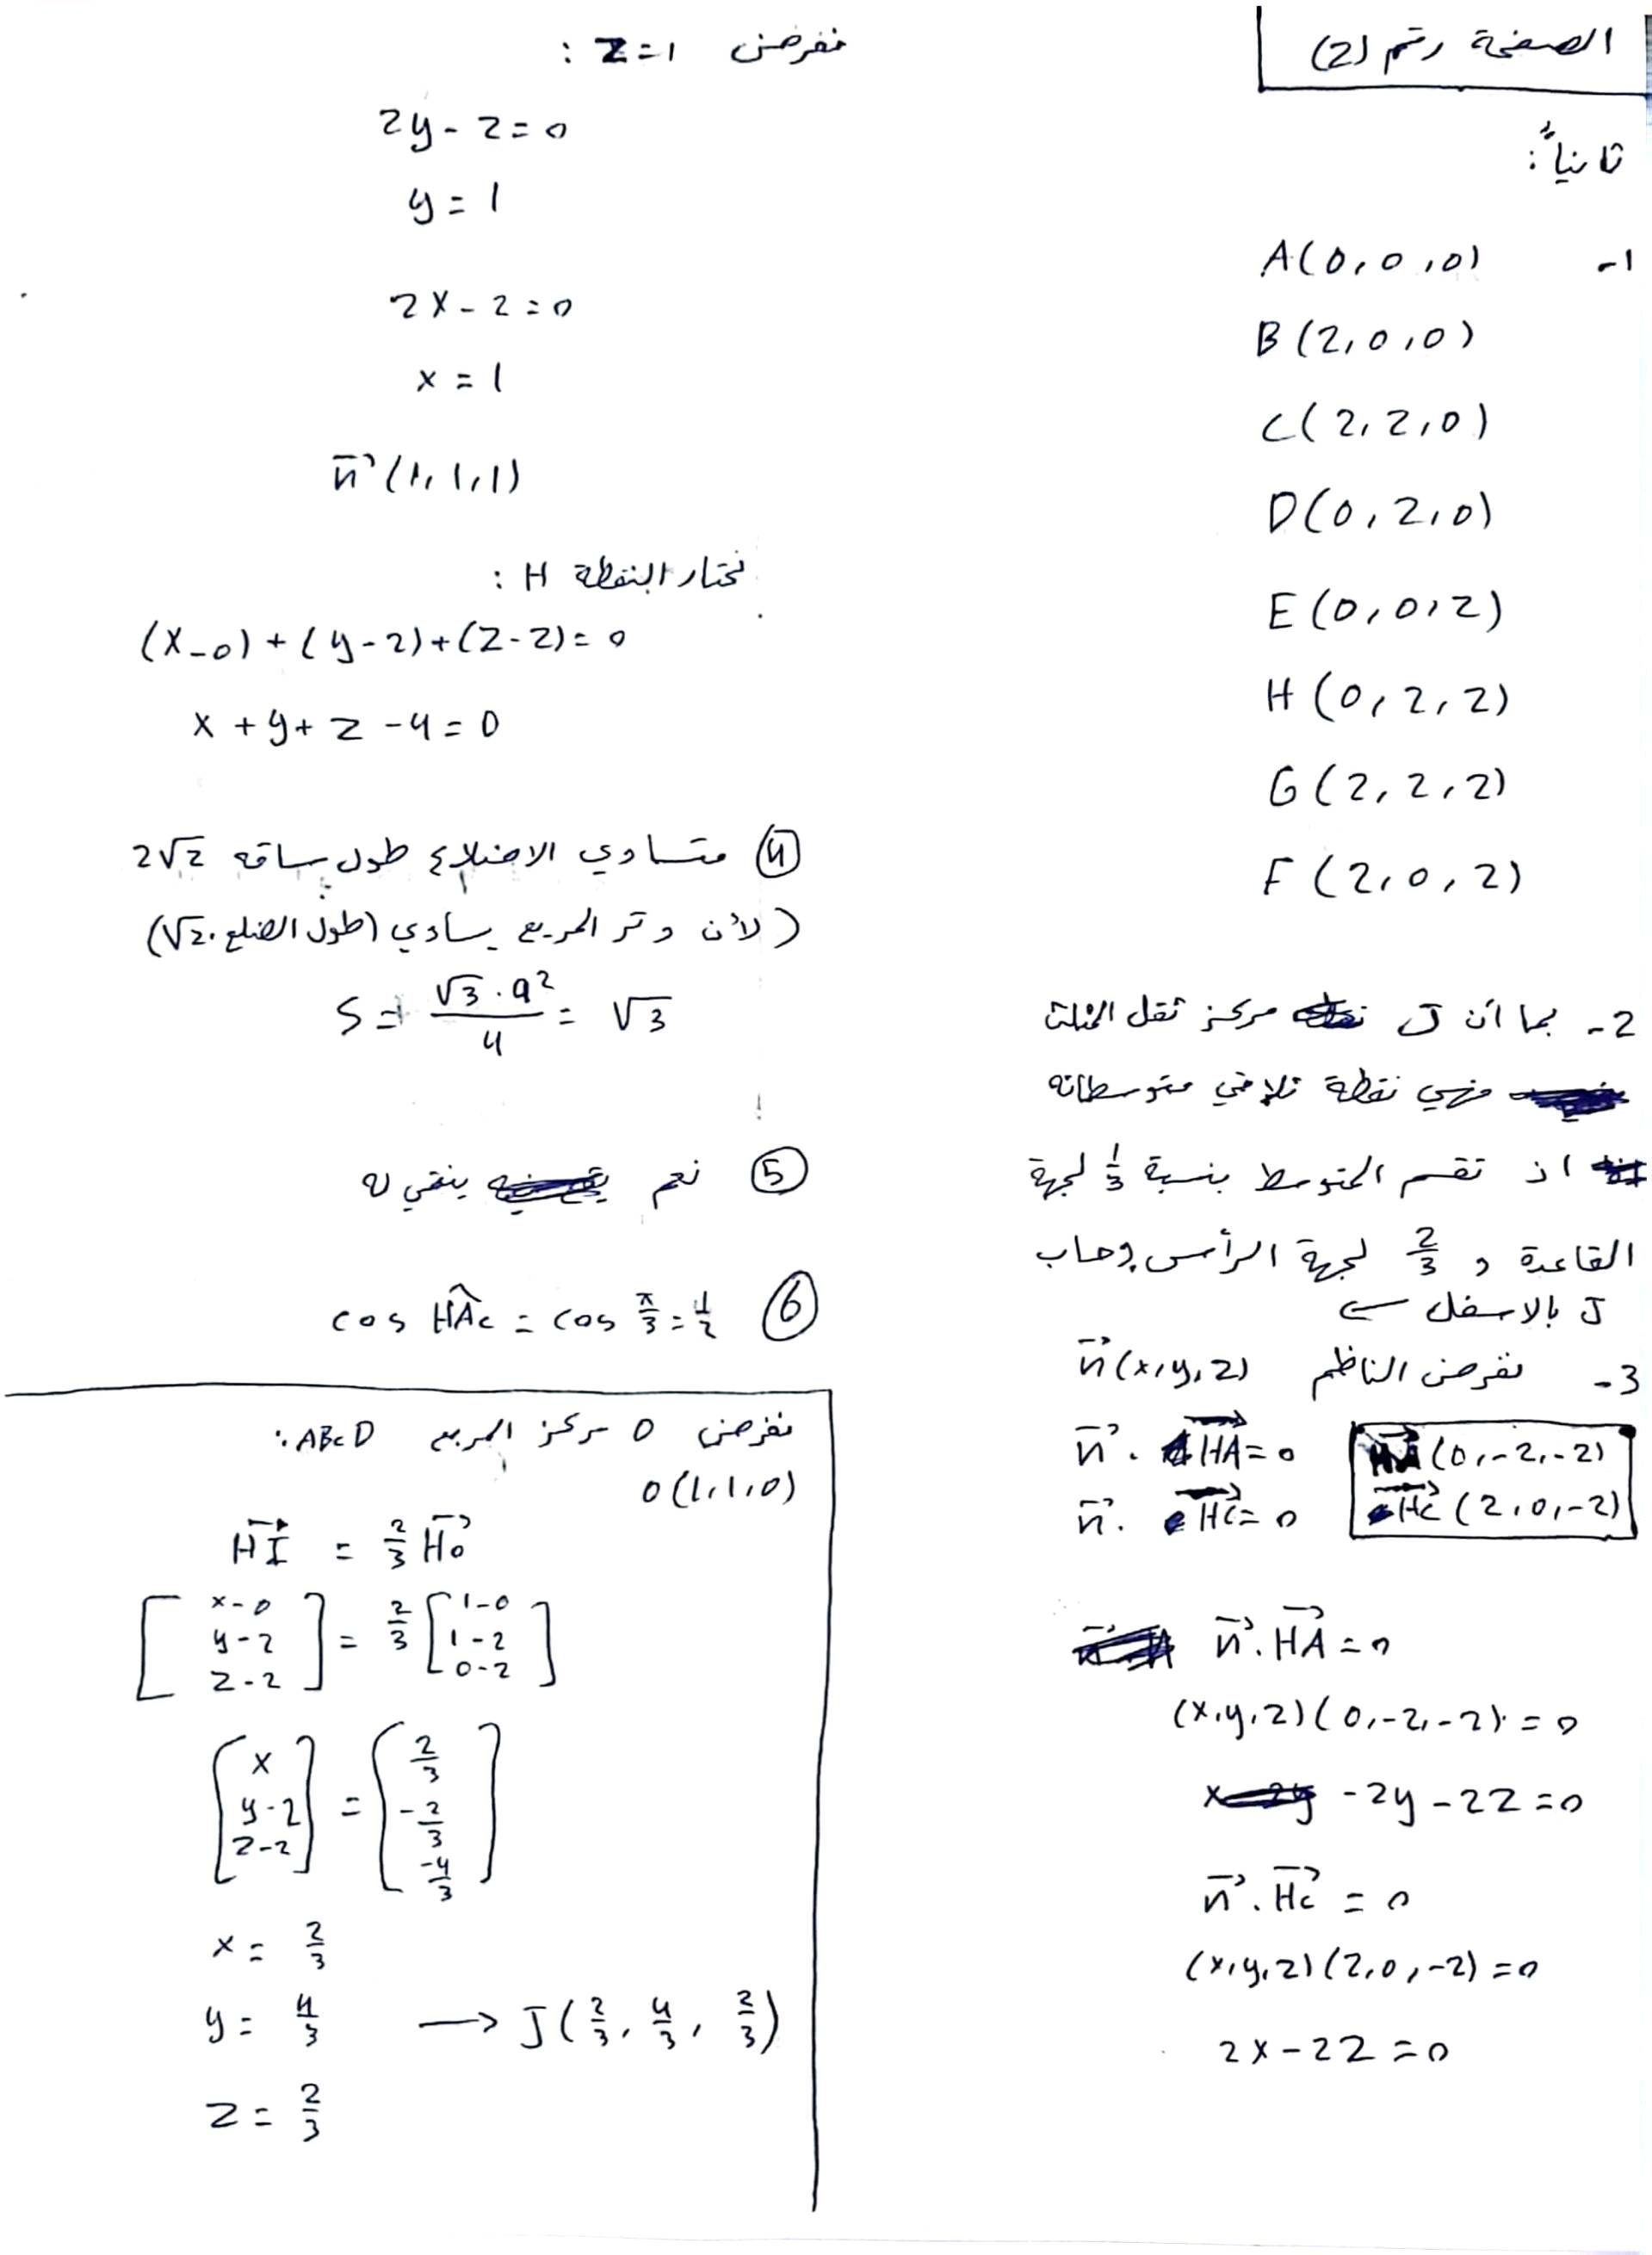 الصفحة رقم (2)
ثانياً:
1- A(0,0,0)
B(2,0,0)
C(2,2,0)
D(0,2,0)
E(0,0,2)
H(0,2,2)
G(2,2,2)
F(2,0,2)
2- بما أن J مركز ثقل المثلث
فهي نقطة تلاقي متوسطاته
اذ تقسم المتوسط بنسبة 1/3 لجهة
القاعدة و 2/3 لجهة الرأس وحساب
J بالاسفل ←
3- نفرض الناظم n⃗(x,y,z)
n⃗ . HA⃗ = 0 HA⃗ (0,-2,-2)
n⃗ . HC⃗ = 0 HC⃗ (2,0,-2)
n⃗ . HA⃗ = 0
(x,y,z)(0,-2,-2) = 0
-2y - 2z = 0
n⃗ . Hc⃗ = 0
(x,y,z)(2,0,-2) = 0
2x - 2z = 0
نفرض z=1 :
2y - 2 = 0
y = 1
2x - 2 = 0
x = 1
n⃗(1,1,1)
نختار النقطة H :
(x-0)+(y-2)+(z-2)=0
x + y + z - 4 = 0
④ متساوي الاضلاع طول ساقه 2√2
(لأن وتر المربع يساوي (طول الضلع.√2)
S = √3 . a² / 4 = √3
⑤ نعم ينتمي له
⑥ cos HÂc = cos π/3 = 1/2
نفرض O مركز المربع ABcD:
O(1,1,0)
HI⃗ = 2/3 Ho⃗
[x-0, y-2, z-2] = 2/3 [1-0, 1-2, 0-2]
[x, y-2, z-2] = [2/3, -2/3, -4/3]
x = 2/3
y = 4/3 → J(2/3, 4/3, 2/3)
z = 2/3